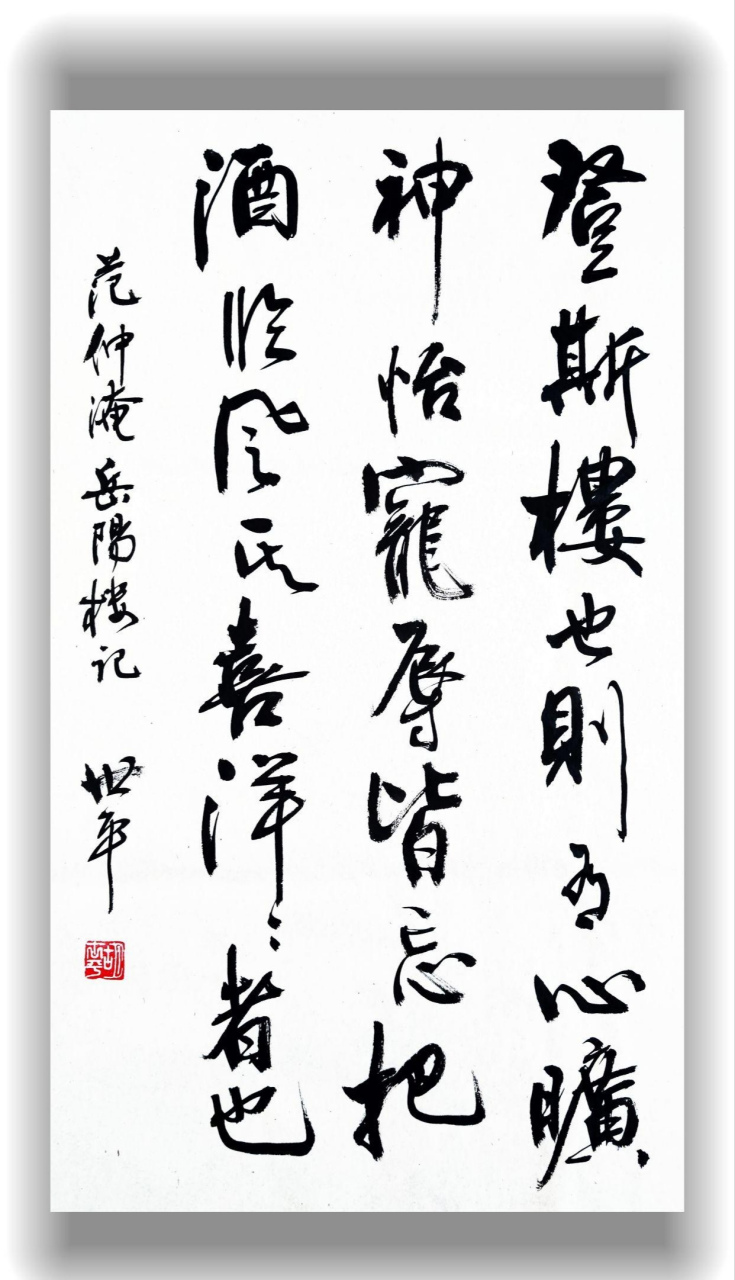 登斯樓也則有心曠
神怡寵辱皆忘把
酒臨風其喜洋〻者也
范仲淹岳陽樓記 世平